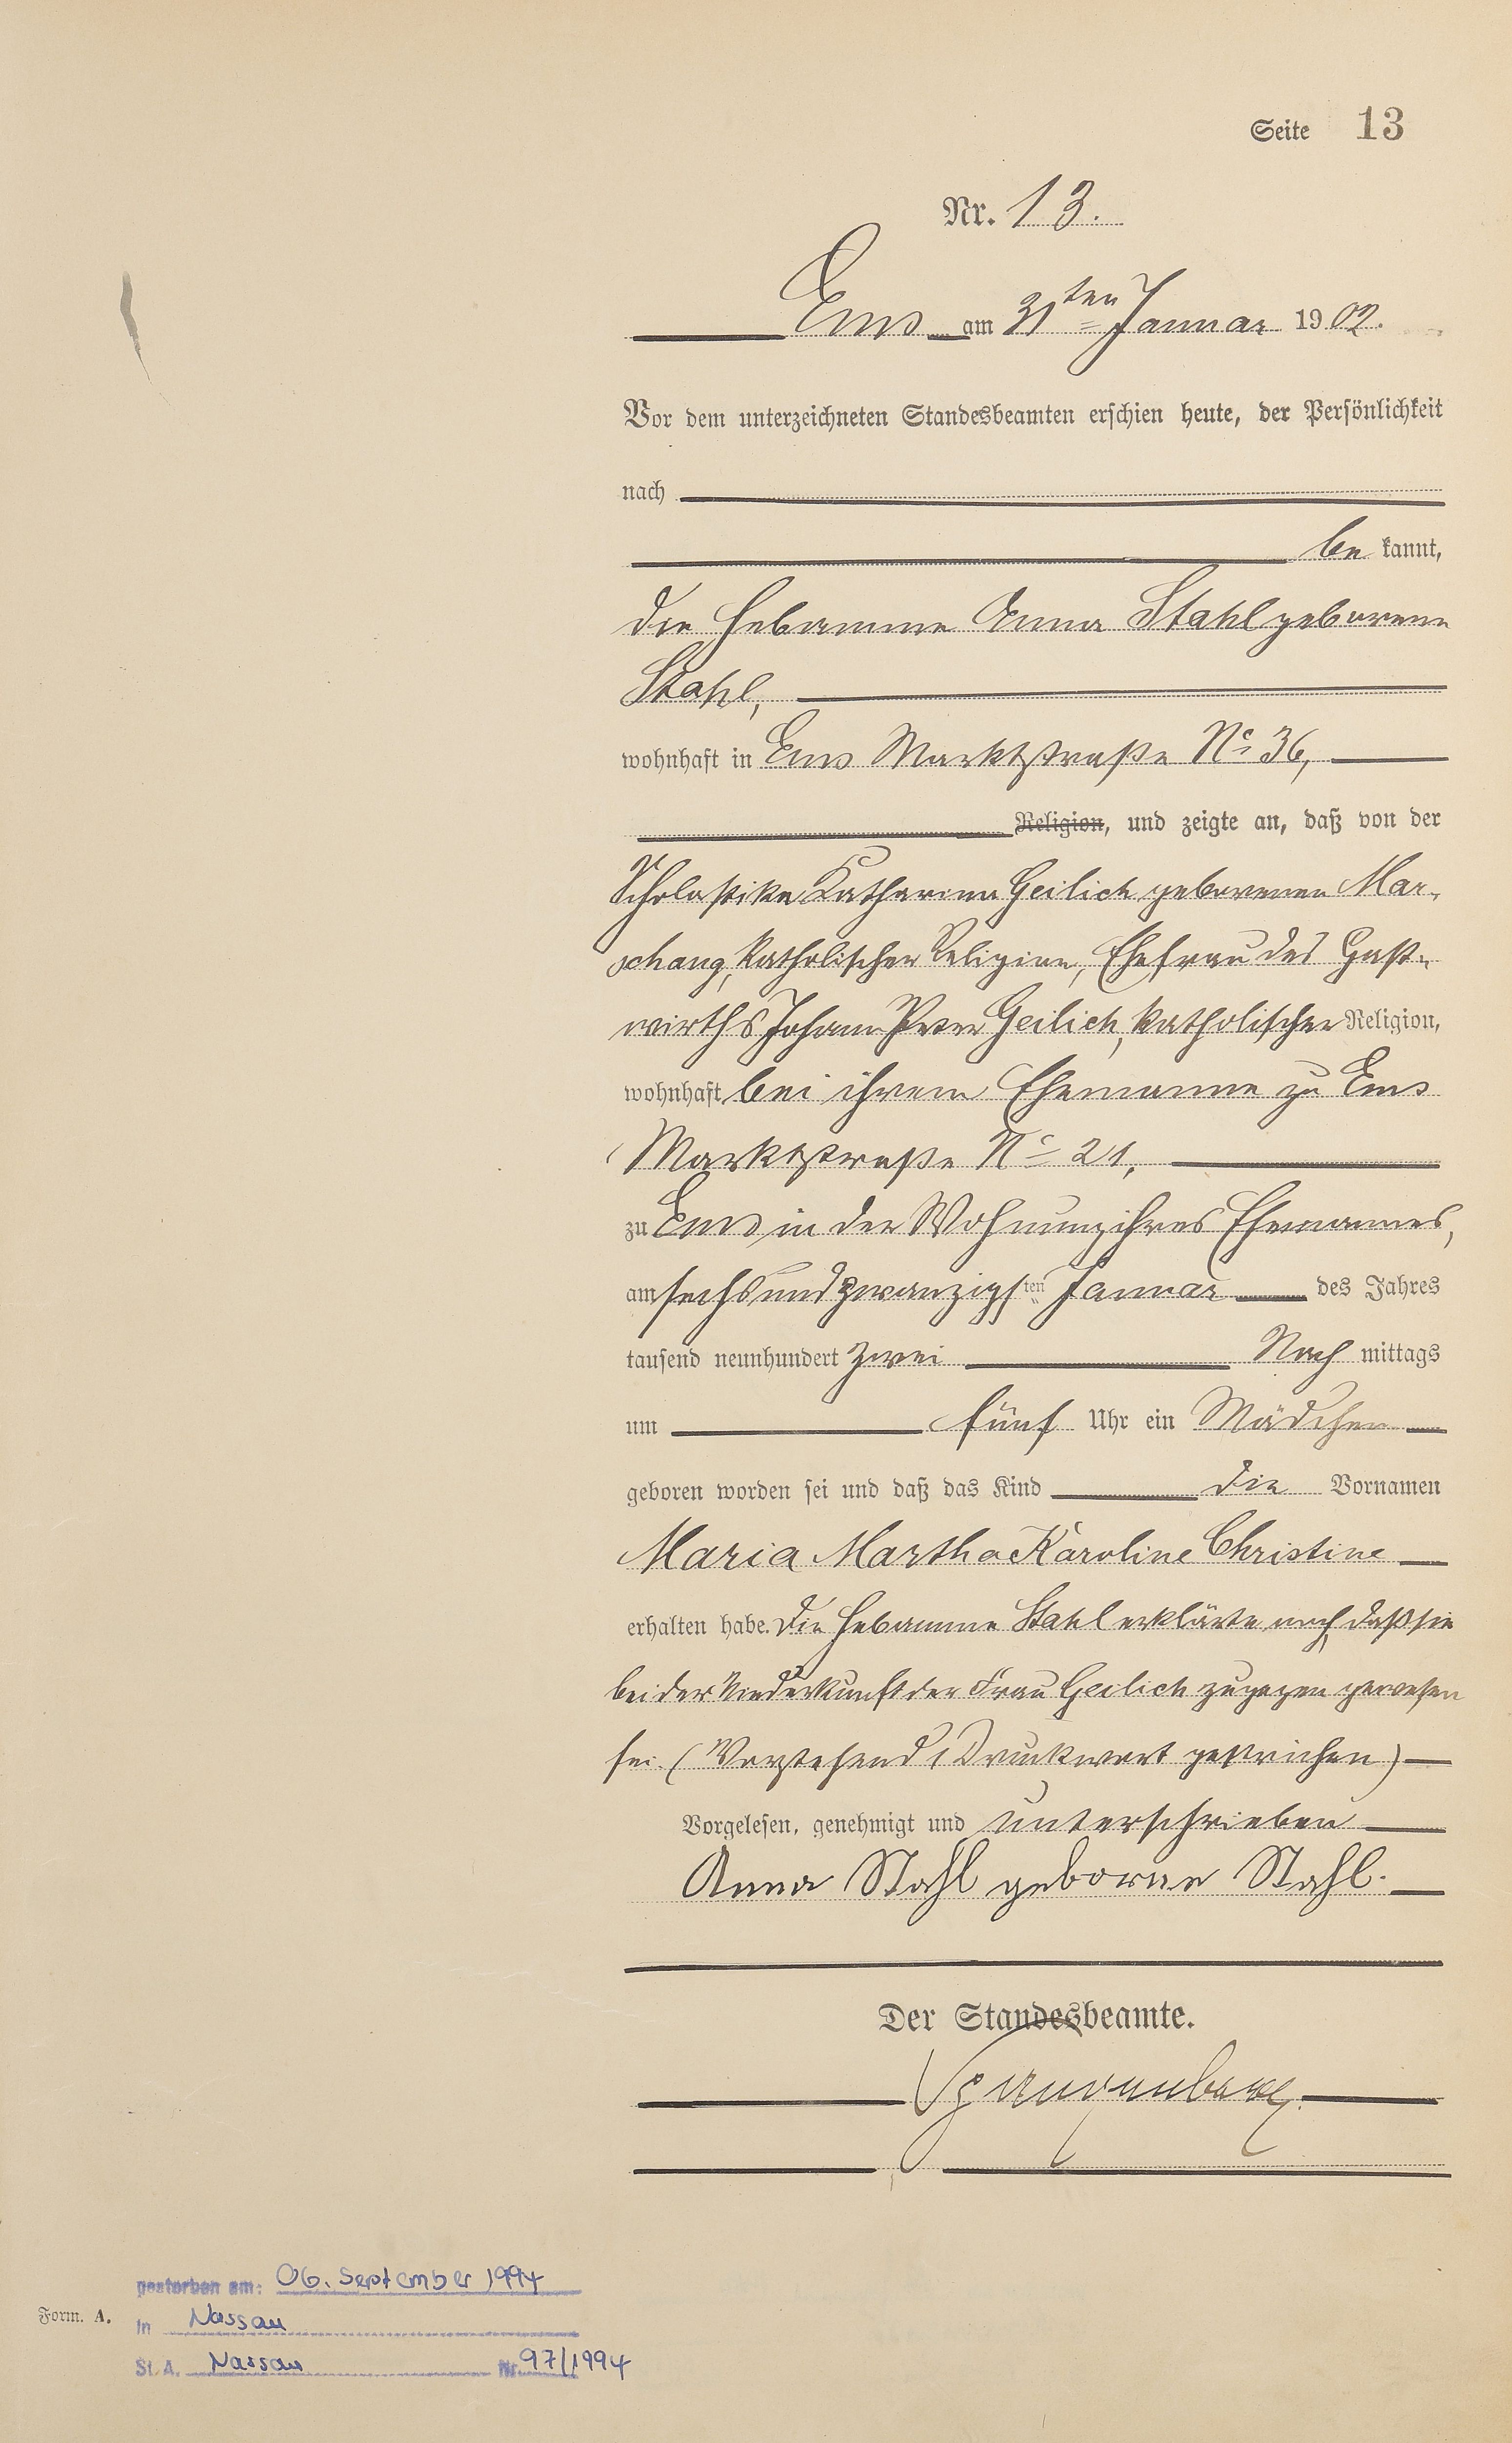 Seite 13
Nr. 13.
Ems am 31ten Januar 1902.
Vor dem unterzeichneten Standesbeamten erschien heute, der Persönlichkeit
nach
be kannt,
die Hebamme Anna Stahl geborene
Stahl,
wohnhaft in Ems Marktstraße No 36,
Religion, und zeigte an, daß von der
Scholastika Katharina Geilich geborenen Mar-
schang, katholischer Religion, Ehefrau des Gast-
wirths Johann Peter Geilich, katholischer Religion,
wohnhaft bei ihrem Ehemanne zu Ems
Marktstraße No 21,
zu Ems in der Wohnung ihres Ehemannes,
am sechsundzwanzigsten Januar des Jahres
tausend neunhundert zwei Nach mittags
um fünf Uhr ein Mädchen
geboren worden sei und daß das Kind die Vornamen
Maria Martha Karoline Christine
erhalten habe. Die Hebamme Stahl erklärte noch, daß sie
bei der Niederkunft der Frau Geilich zugegen gewesen
sei. (Vorstehend 1 Druckwort gestrichen)
Vorgelesen, genehmigt und unterschrieben
Anna Stahl geborne Stahl.
Der Standesbeamte.
Spangenberg.
gestorben am: 06. September 1994
Form. A.
in Nassau
St. A. Nassau Nr. 97/1994